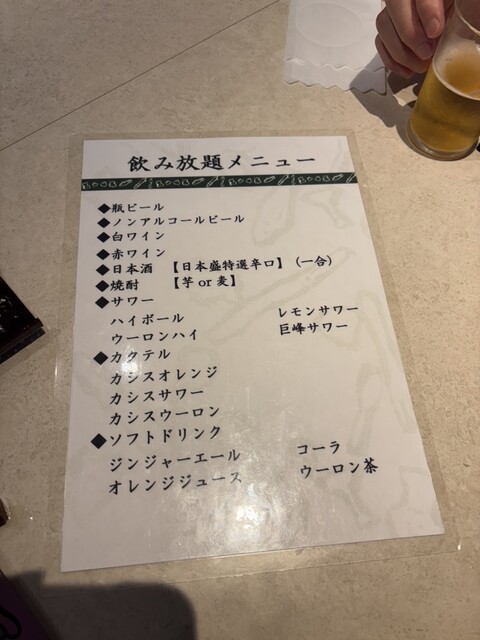 飲み放題メニュー
◆瓶ビール
◆ノンアルコールビール
◆白ワイン
◆赤ワイン
◆日本酒 【日本盛特選辛口】 (一合)
◆焼酎 【芋 or 麦】
◆サワー
ハイボール レモンサワー
ウーロンハイ 巨峰サワー
◆カクテル
カシスオレンジ
カシスサワー
カシスウーロン
◆ソフトドリンク
ジンジャーエール コーラ
オレンジジュース ウーロン茶